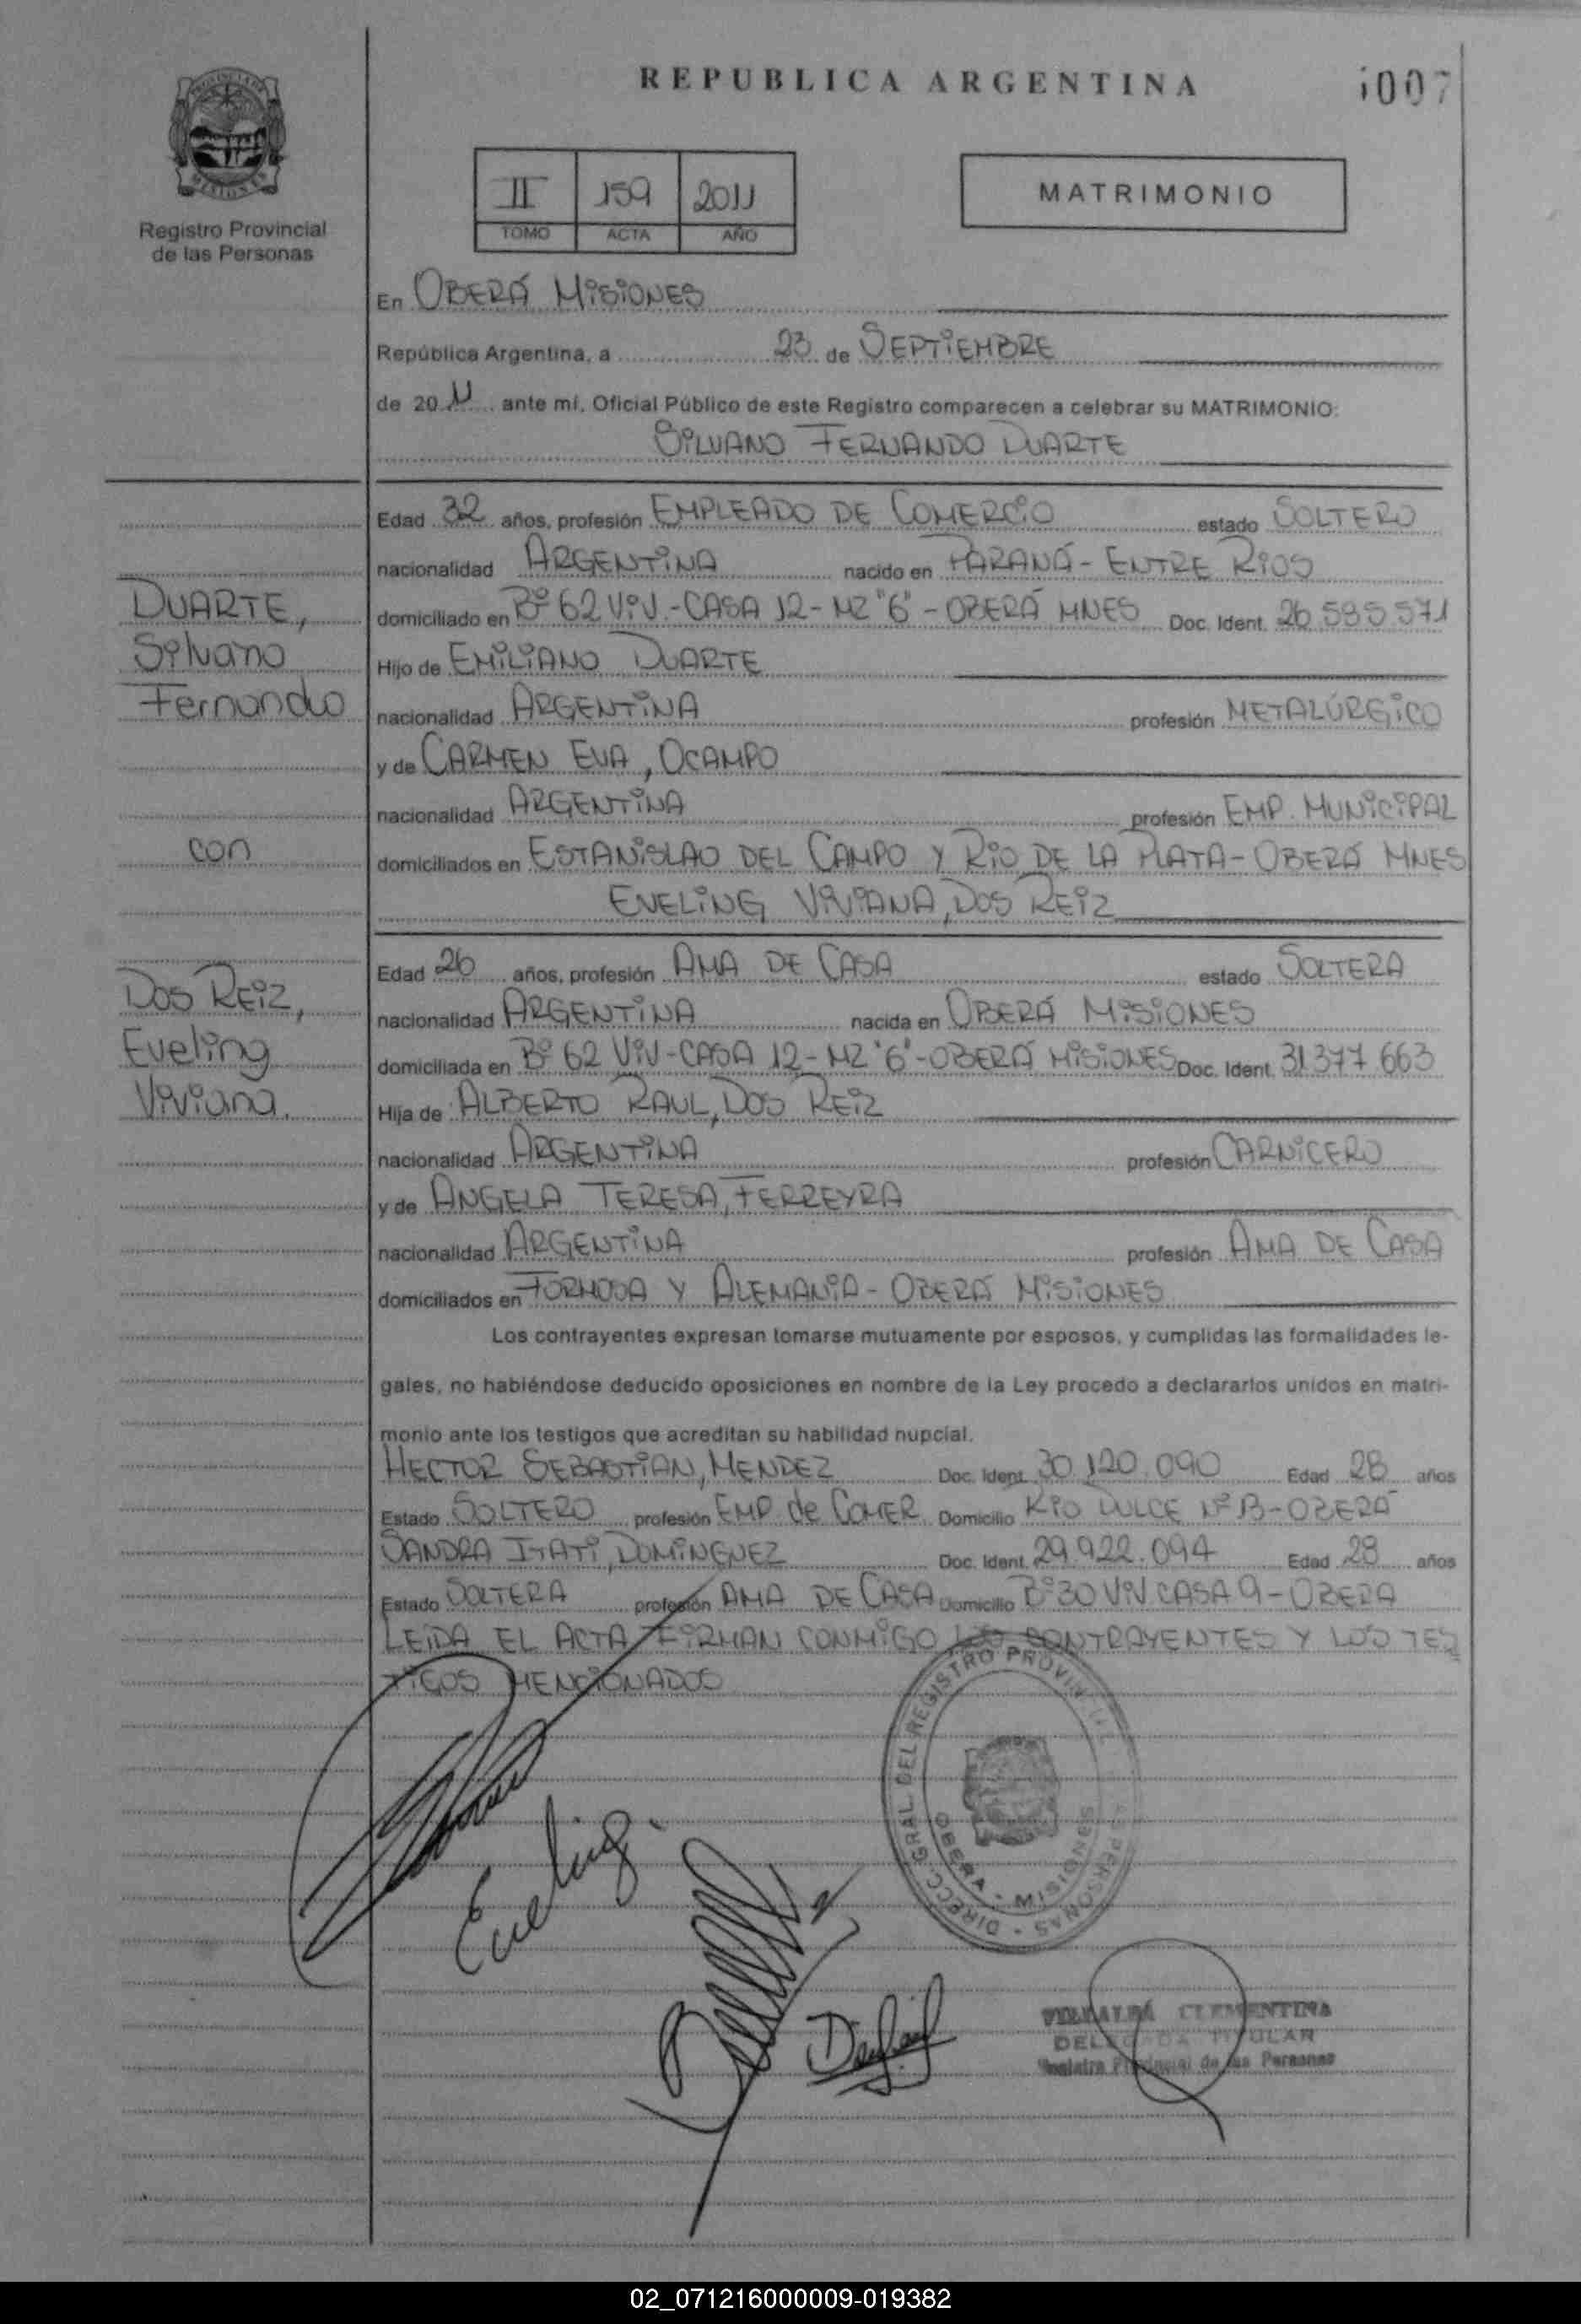 REPUBLICA ARGENTINA
1007
PROVINCIA DE
MISIONES
Registro Provincial
de las Personas
II 159 2011
TOMO ACTA AÑO
MATRIMONIO
En OBERÁ MISIONES
República Argentina, a 23 de SEPTIEMBRE
de 20 11 ante mí, Oficial Público de este Registro comparecen a celebrar su MATRIMONIO:
SILVANO FERNANDO DUARTE
Edad 32 años, profesión EMPLEADO DE COMERCIO estado SOLTERO
nacionalidad ARGENTINA nacido en PARANÁ - ENTRE RIOS
domiciliado en Bº 62 VIV.- CASA 12 - MZ "6" - OBERÁ MNES Doc. Ident. 26.585.571
Hijo de EMILIANO DUARTE
nacionalidad ARGENTINA profesión METALÚRGICO
y de CARMEN EVA, OCAMPO
nacionalidad ARGENTINA profesión EMP. MUNICIPAL
domiciliados en ESTANISLAO DEL CAMPO Y RIO DE LA PLATA - OBERÁ MNES
DUARTE,
Silvano
Fernando
con
Dos REIZ,
Eveling
Viviana.
EVELING VIVIANA, DOS REIZ
Edad 26 años, profesión AMA DE CASA estado SOLTERA
nacionalidad ARGENTINA nacida en OBERÁ MISIONES
domiciliada en Bº 62 VIV - CASA 12 - MZ "6" - OBERÁ MISIONES Doc. Ident. 31.377.663
Hija de ALBERTO RAUL, DOS REIZ
nacionalidad ARGENTINA profesión CARNICERO
y de ANGELA TERESA, FERREYRA
nacionalidad ARGENTINA profesión AMA DE CASA
domiciliados en FORMOSA Y ALEMANIA - OBERÁ MISIONES
Los contrayentes expresan tomarse mutuamente por esposos, y cumplidas las formalidades le-
gales, no habiéndose deducido oposiciones en nombre de la Ley procedo a declararlos unidos en matri-
monio ante los testigos que acreditan su habilidad nupcial.
HECTOR SEBASTIAN, MENDEZ Doc. Ident. 30.120.090 Edad 28 años
Estado SOLTERO profesión EMP. de COMER. Domicilio RIO DULCE Nº 13 - OBERÁ
SANDRA ITATI, DOMINGUEZ Doc. Ident. 29.922.094 Edad 28 años
Estado SOLTERA profesión AMA DE CASA Domicilio Bº 30 VIV. CASA 9 - OBERA
LEIDA EL ACTA FIRMAN CONMIGO LOS CONTRAYENTES Y LOS TES
TIGOS MENCIONADOS
DIRECC. GRAL. DEL REGISTRO PROVIN PERSONAS
OBERA - MISIONES
Eveling.
VILLALBA CLEMENTINA
DELEGADA TITULAR
Registro Provincial de las Personas
02_071216000009-019382